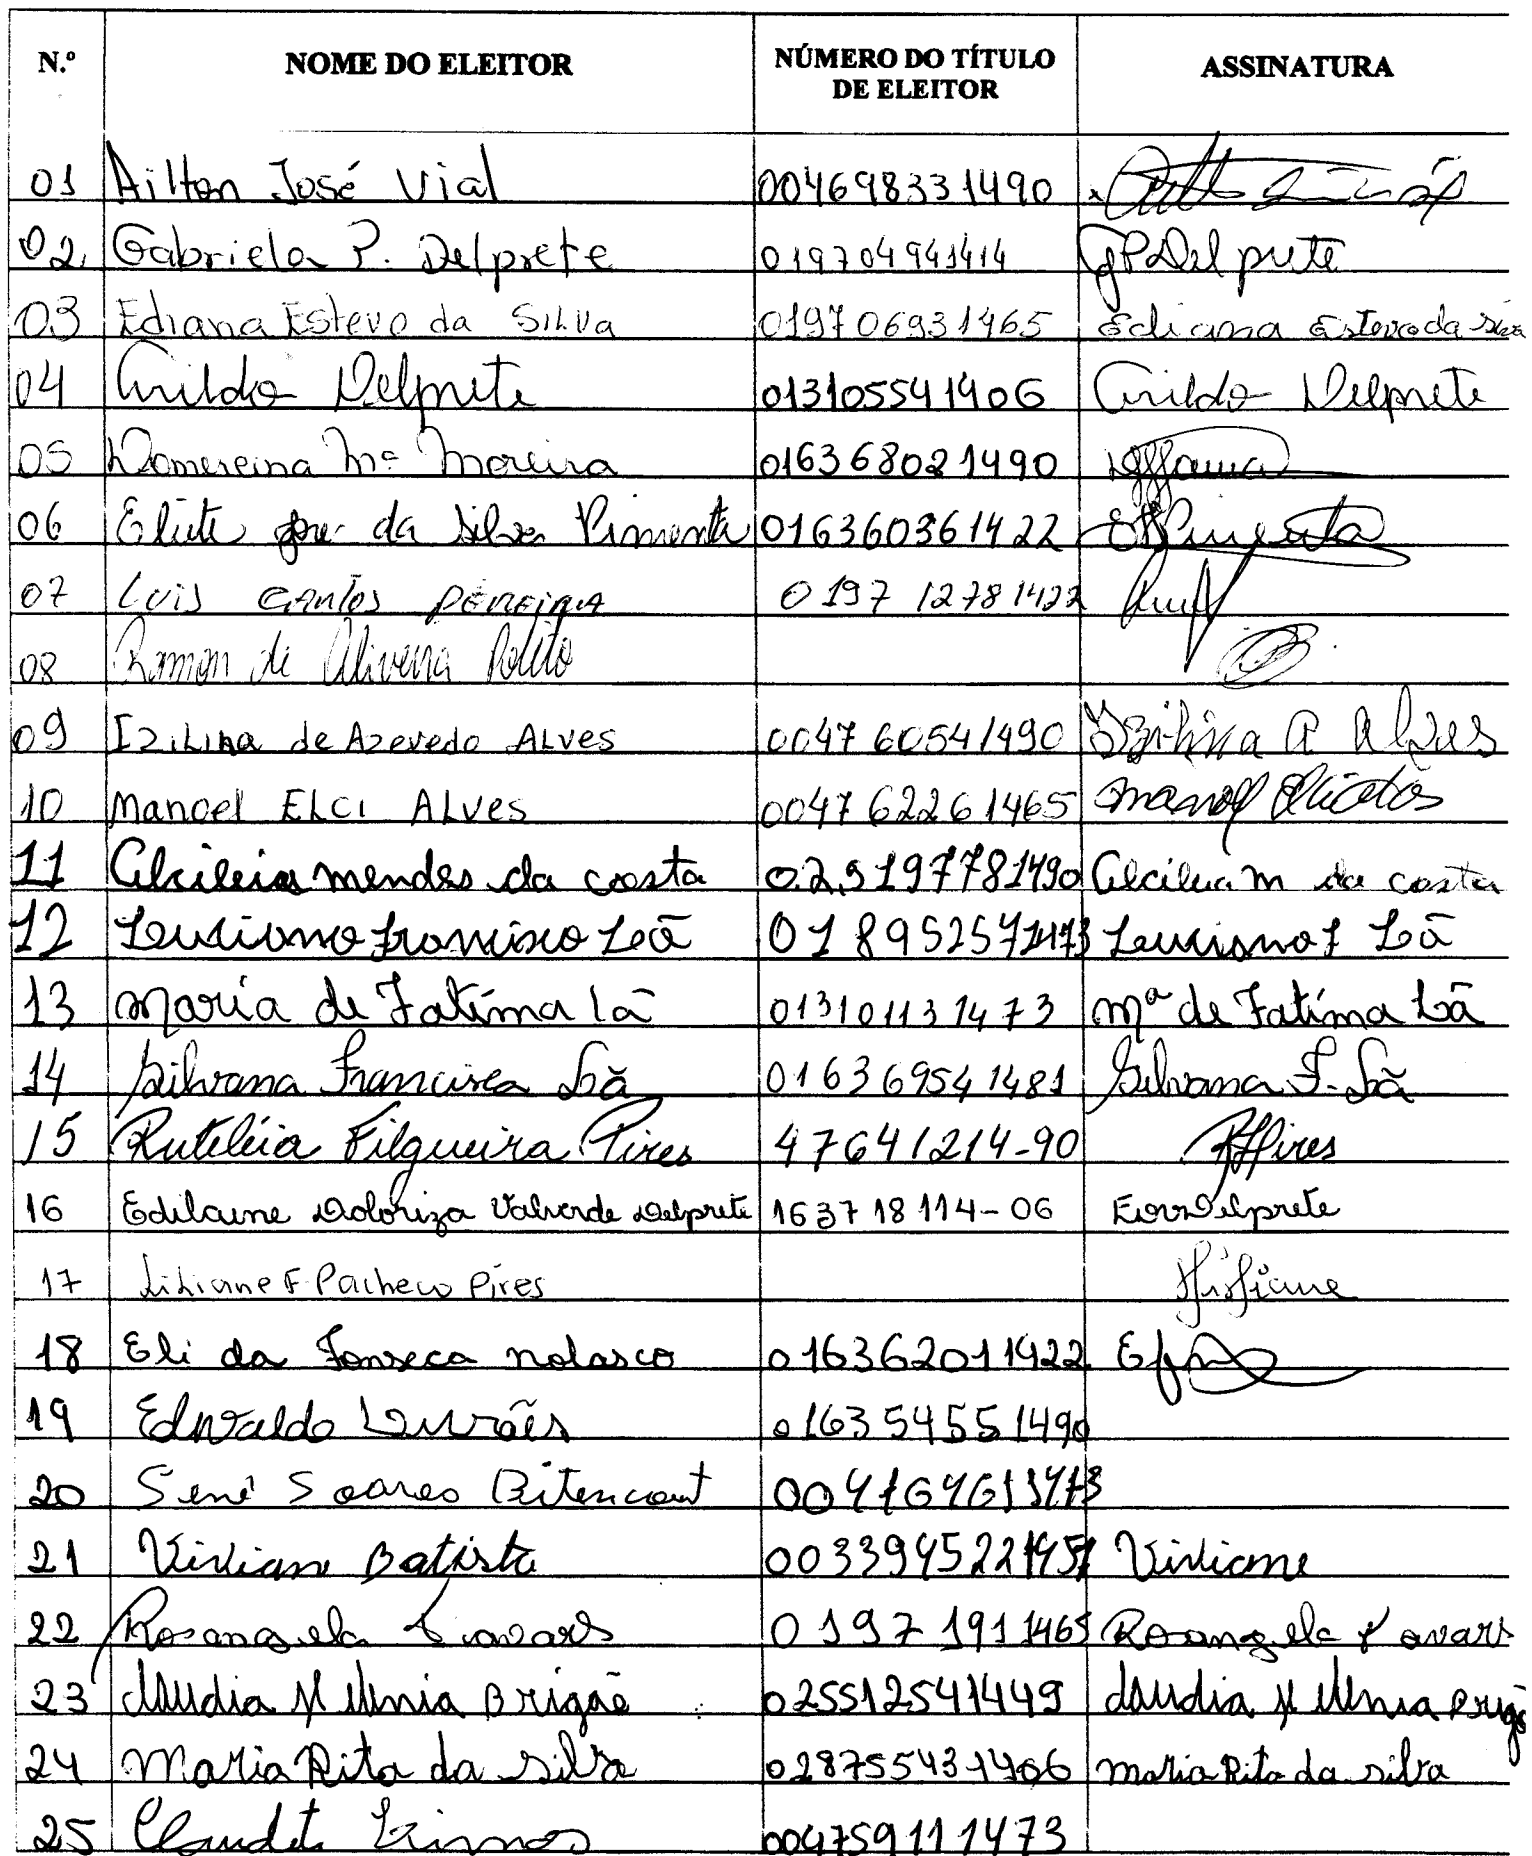 N.º NOME DO ELEITOR NÚMERO DO TÍTULO DE ELEITOR ASSINATURA
01 Ailton José Vial 004698331490
02 Gabriela P. Delprete 019704941414 GPDelprete
03 Ediana Estevo da Silva 019706931465 Ediana Estevo da Silva
04 Delprete 013105541406 Delprete
05 Mª Moreira 016368021490
06 Elute da Silva Pimenta 016360361422 Pimenta
07 Luis Carlos Pereira 0197 12781422
08 Ramon de Oliveira Polito
09 Izilina de Azevedo Alves 004760541490 Izilina A Alves
10 Manoel ELCI ALVes 004762261465 Manoel
11 Alcileia mendes da costa 029197781490 Alcileia m da costa
12 Luciano Francisco Lã 018952571473 Luciano F Lã
13 Maria de Fatíma lã 013101131473 Mª de Fatíma Lã
14 Silvana Francisca Lã 016369541481 Silvana F. Lã
15 Rutiléia Filgueira Pires 47641214-90 RFPires
16 Edilaine Doloriza Valverde Delprete 163718114-06 EDVDelprete
17 Liliane F Pacheco Pires
18 Eli da Fonseca nolasco 016362011422
19 Edivaldo 016354551490
20 Soares Bitencourt
21 Batista 0033945221457 Viviane
22 Rosangela Tavares 0197 1911465 Rosangela Tavares
23 Brigão 025512541449
24 Maria Rita da silva 028755431406 maria Rita da silva
25 004759111473